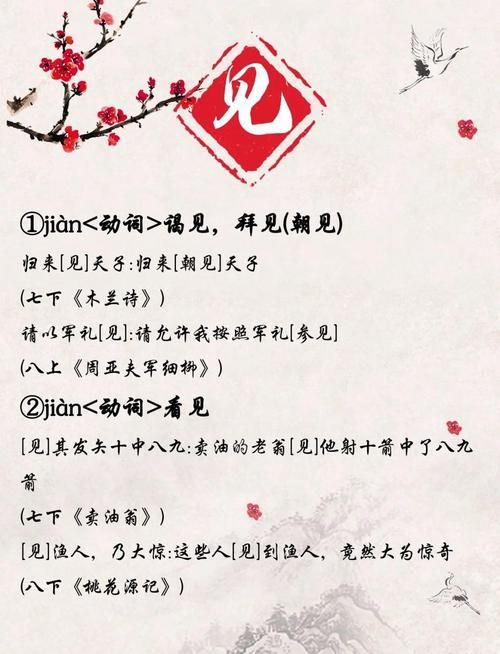 见
①jiàn<动词>谒见，拜见(朝见)
归来[见]天子:归来[朝见]天子
(七下《木兰诗》)
请以军礼[见]:请允许我按照军礼[参见]
(八上《周亚夫军细柳》)
②jiàn<动词>看见
[见]其发矢十中八九:卖油的老翁[见]他射十箭中了八九
箭
(七下《卖油翁》)
[见]渔人，乃大惊:这些人[见]到渔人，竟然大为惊奇
(八下《桃花源记》)